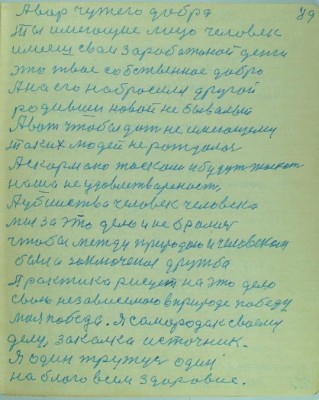 Авар чужего добра 49
Ты имеющие лицо человек
имеещ свои заработаной денги
это твое собственное добро
А на его набросился другой
родивши новой не бывалый
А вот чтобы дат не имеющему
таких людей не рождалос
А скормано таскали и будут таскат
наша не удовлетварительност,
А убийства человек человека
мы за это дело и не бралис
чтобы между природаю и человеком
была заключеная дружба
Практика рисует на это дело
свою независемою в природе победу
моя победа. Я самородак своему
делу, закалка источник.
Я один тружус один
на благо всем здоровие.